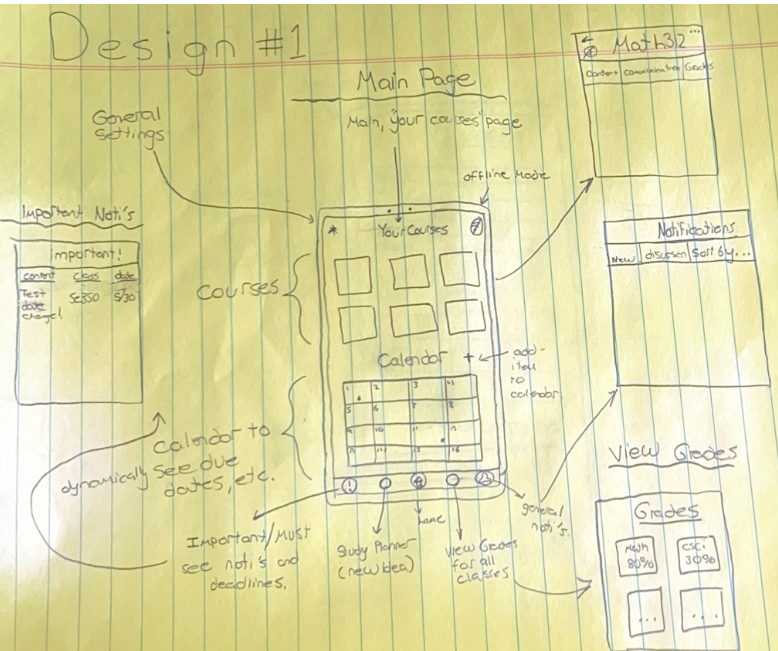 Design #1
Main Page
Main, your courses' page
General
Settings
offline Mode
Math32 ...
Content
Grades
Important Noti's
important!
content class date
Test
date
change!
SE350
5/30
Your Courses
Courses
Calendar +
add-
item
to
calendar
1 2 3
5 6 7 8
Calendar to
dynamically see due
dates, etc.
Notifications
New discussion Sort by...
View Grades
Grades
Math
80%
CSCI
30%
... ...
Important/Must
see noti's and
deadlines.
Study Planner
(new idea)
home
View Grades
for all
classes
general
noti's.